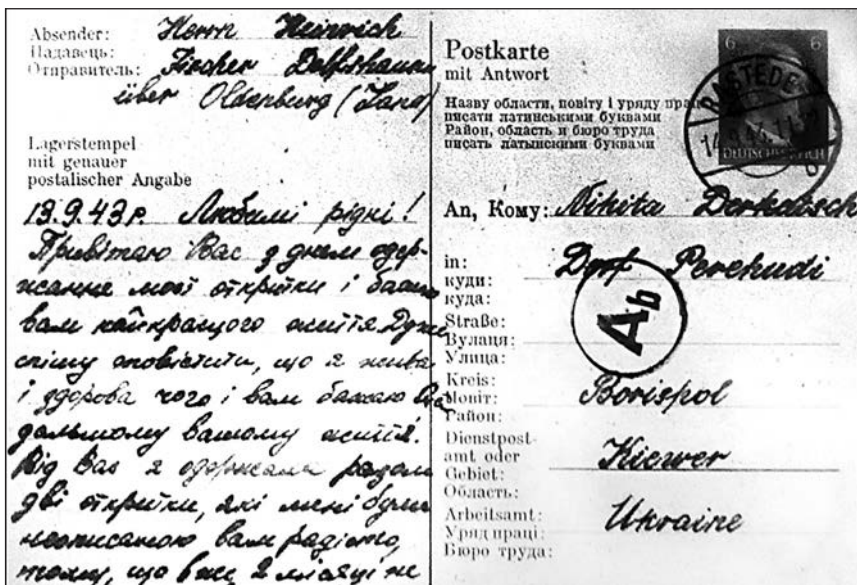 Absender: Herrn Heinrich
Надавець: Fischer Delfshausen
Отправитель:
über Oldenburg (Land)
Lagerstempel
mit genauer
postalischer Angabe
13.9.43 р. Любимі рідні!
Привітаю Вас з днем одер-
жання моєї откритки і бажаю
вам найкращого життя Дуже
спішу сповістити, що я жива
і здорова чого і вам бажаю
дальшому вашому житті.
Від Вас я одержала разом
дві открытки, які мені були
неописаною вам радістю,
тому, що вже 2 місяці не
Postkarte
mit Antwort
Назву области, повіту і уряду праці
писати латинськими буквами
Район, область и бюро труда
писать латынскими буквами
6 6
DEUTSCHES REICH
RASTEDE
An, Кому: Nikita Derkatsch
in: Dorf Perehudi
куди:
куда:
Ab
Straße:
Вулаця:
Улица:
Kreis: Borispol
Повіт:
Район:
Dienstpost-
amt oder Kiewer
Gebiet:
Область:
Arbeitsamt: Ukraine
Уряд праці:
Бюро труда: